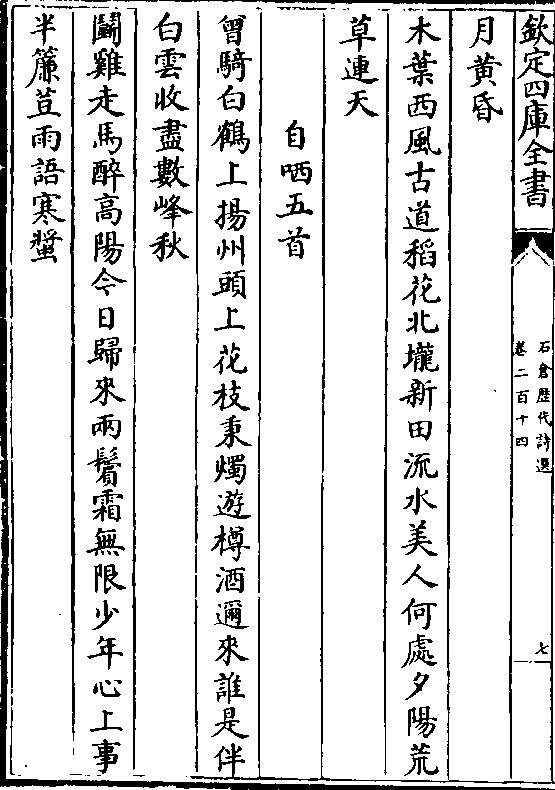 欽定四庫全書
石倉歷代詩選
卷二百十四
七
月黄昏
木葉西風古道稻花北壠新田流水美人何處夕陽荒
草連天
自哂五首
曾騎白鶴上揚州頭上花枝秉燭遊樽酒邇來誰是伴
白雲收盡數峰秋
鬭雞走馬醉高陽今日歸來兩鬢霜無限少年心上事
半簾荳雨語寒螿